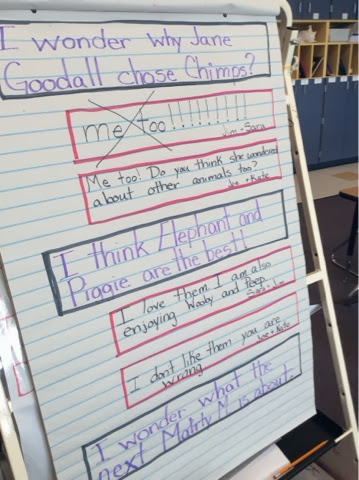 I wonder why Jane
Goodall chose Chimps?
me too!!!!!!!!!
Jim + Sara
Me too! Do you think she wondered
about other animals too?
Joe + Kate
I think Elephant and
Piggie are the best!
I love them I am also
enjoying Wooby and Peep.
Sara + Jim
I don't like them you are
wrong.
Joe + Kate
I wonder what the
next Matrly M. is about.